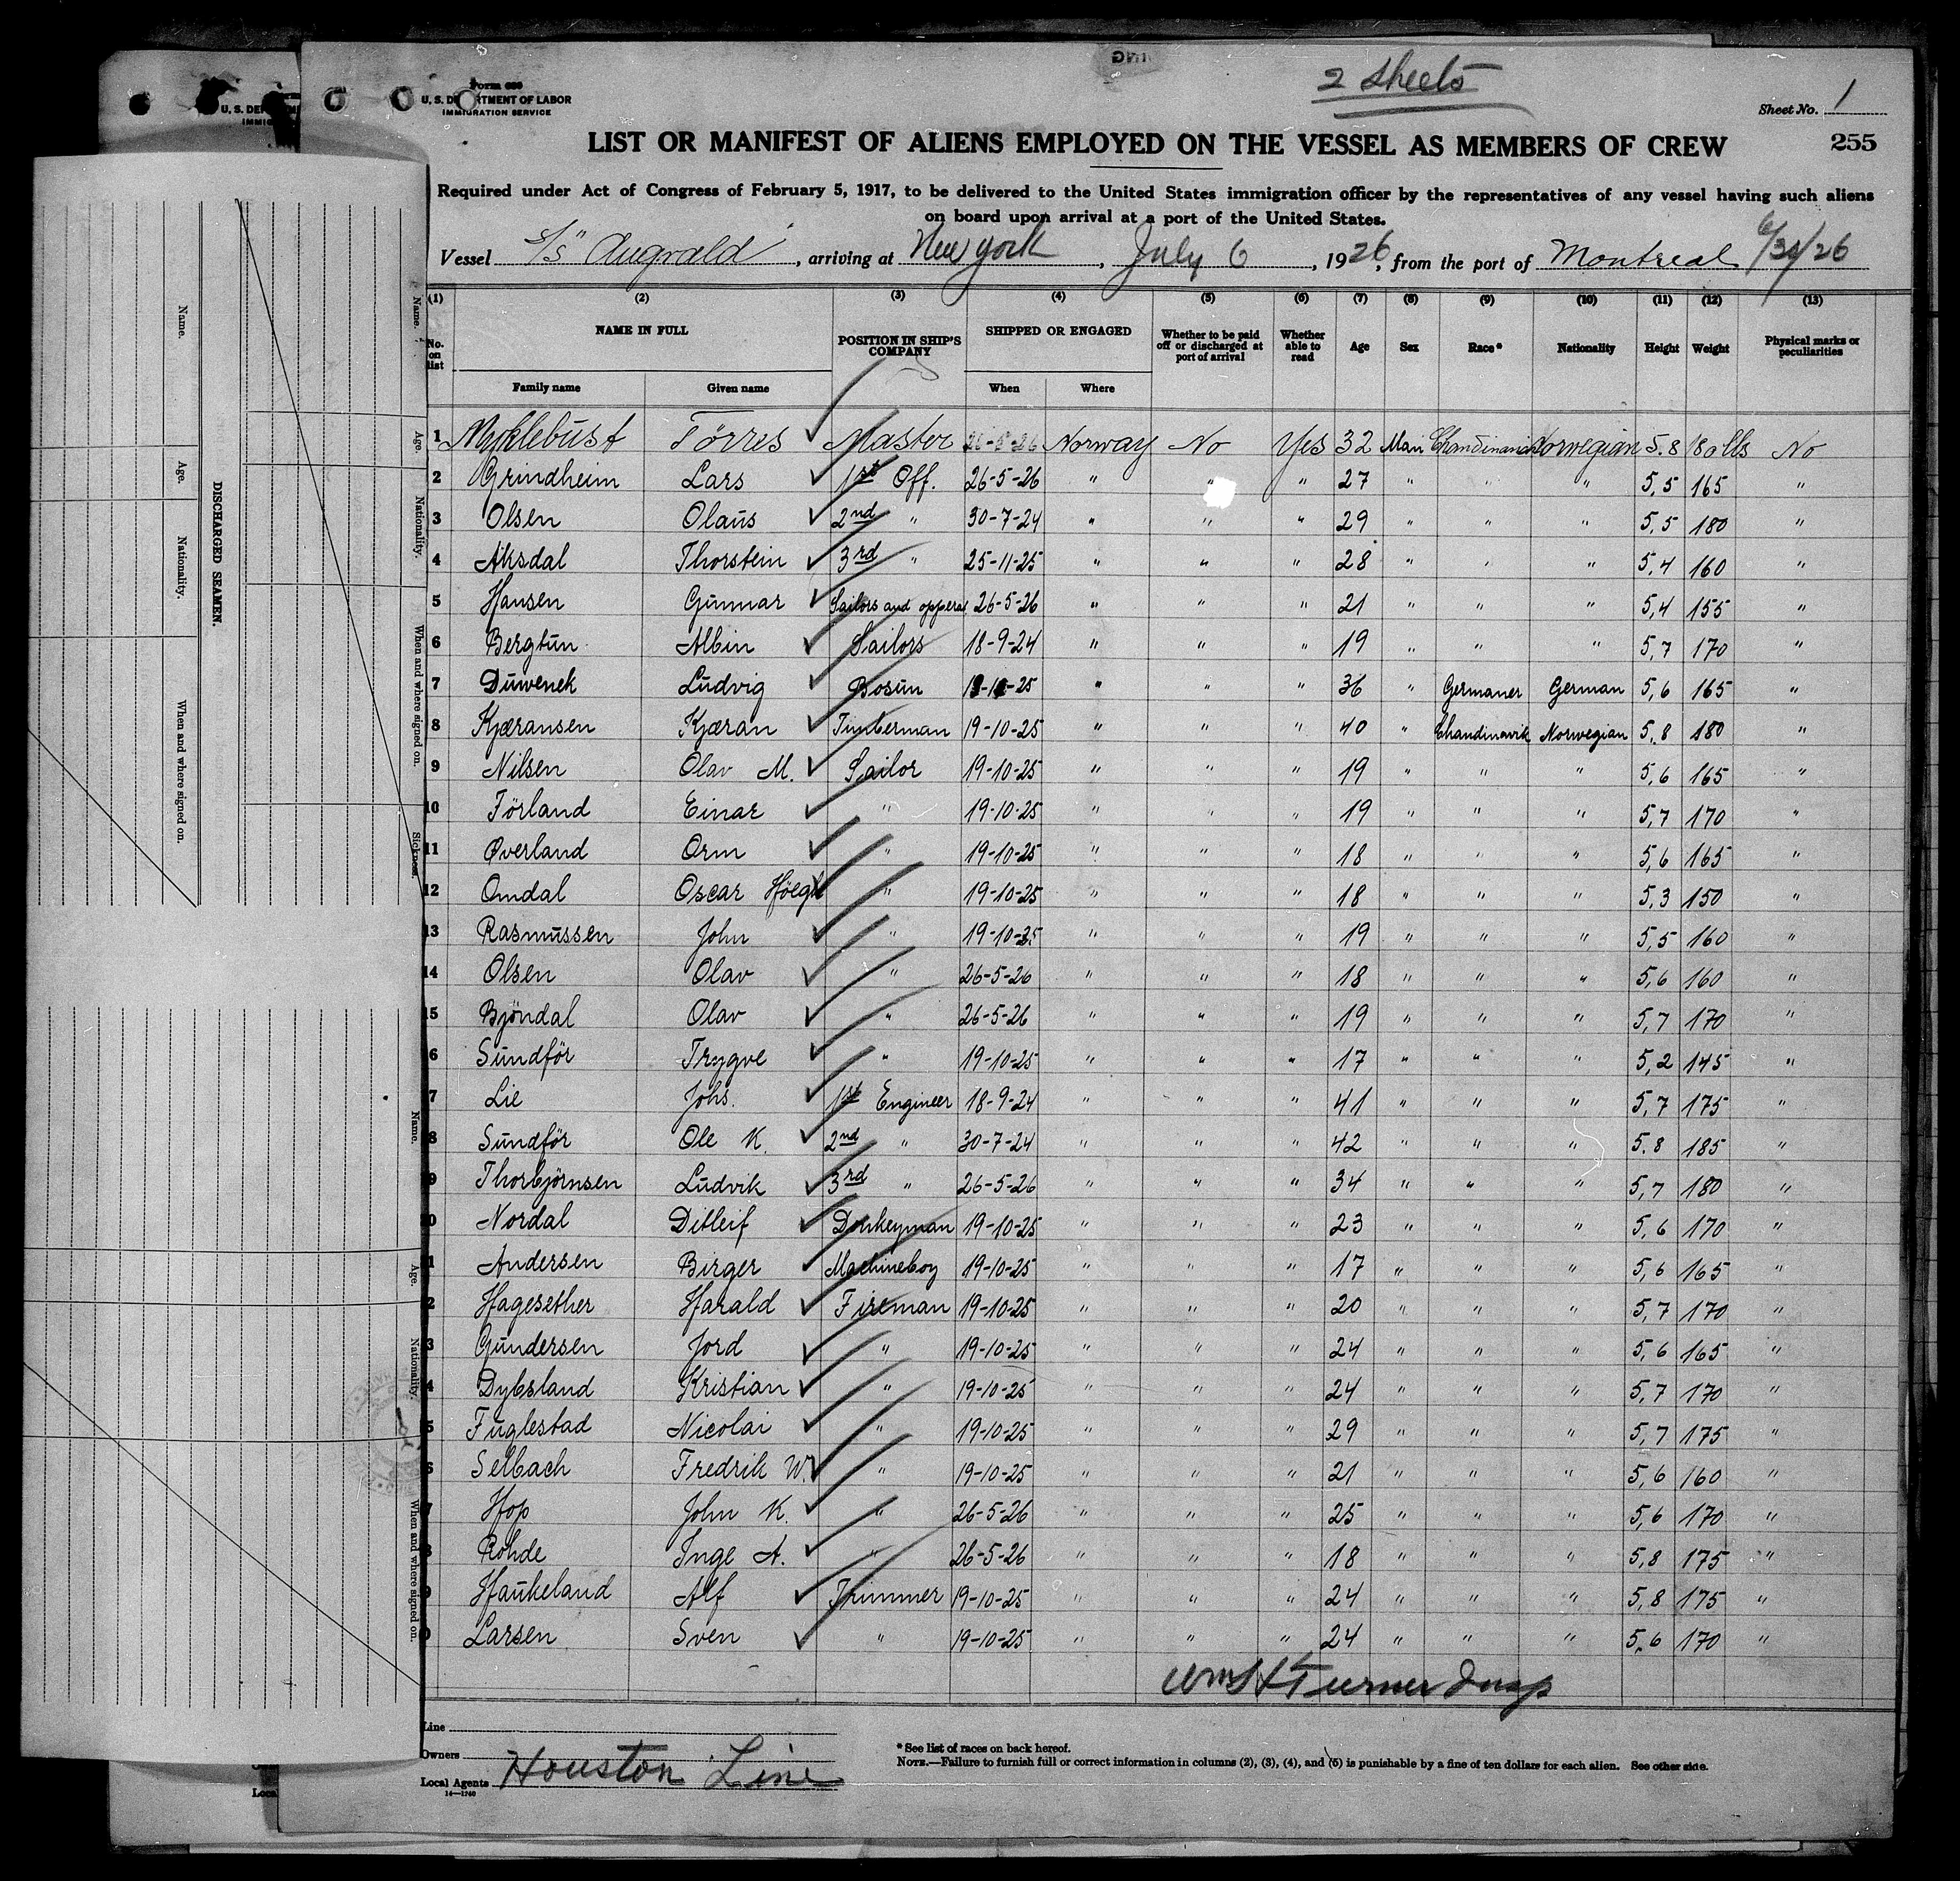 2 Sheets
Form 680
U. S. DEPARTMENT OF LABOR
IMMIGRATION SERVICE
Sheet No. 1
255
LIST OR MANIFEST OF ALIENS EMPLOYED ON THE VESSEL AS MEMBERS OF CREW
Required under Act of Congress of February 5, 1917, to be delivered to the United States immigration officer by the representatives of any vessel having such aliens
on board upon arrival at a port of the United States.
Vessel S/S "Augvald", arriving at New York, July 6, 1926, from the port of Montreal
(1) (2) (3) (4) (5) (6) (7) (8) (9) (10) (11) (12) (13)
No. on list NAME IN FULL Family name Given name POSITION IN SHIP'S COMPANY SHIPPED OR ENGAGED When Where Whether to be paid off or discharged at port of arrival Whether able to read Age Sex Race* Nationality Height Weight Physical marks or peculiarities
1 Myklebust Törres Master 26-5-26 Norway No Yes 32 Man Norwegian 5.8 180 lbs No
2 Grindheim Lars 1st Off. 26-5-26 " " " 27 " " " 5,5 165 "
3 Olsen Olaus 2nd " 30-7-24 " " " 29 " " " 5,5 180 "
4 Aksdal Thorstein 3rd " 25-11-25 " " " 28 " " " 5,4 160 "
5 Hansen Gunnar Sailors and opperat 26-5-26 " " " 21 " " " 5,4 155 "
6 Bergtun Albin Sailors 18-9-24 " " " 19 " " " 5,7 170 "
7 Duwenek Ludvig Bosun " " " 36 " Germaner German 5,6 165 "
8 Kjæransen Kjæran Timberman 19-10-25 " " " 40 " Chandinavik Norwegian 5,8 180 "
9 Nilsen Olav M. Sailor 19-10-25 " " " 19 " " " 5,6 165 "
10 Förland Einar " 19-10-25 " " " 19 " " " 5,7 170 "
11 Øverland Orm " 19-10-25 " " " 18 " " " 5,6 165 "
12 Omdal Oscar " 19-10-25 " " " 18 " " " 5,3 150 "
13 Rasmussen John " 19-10-25 " " " 19 " " " 5,5 160 "
14 Olsen Olav " 26-5-26 " " " 18 " " " 5,6 160 "
15 Bjöndal Olav " 26-5-26 " " " 19 " " " 5,7 170 "
6 Sundför Trygve " 19-10-25 " " " 17 " " " 5,2 145 "
7 Lie Johs. 1st Engineer 18-9-24 " " " 41 " " " 5,7 175 "
8 Sundför Ole K. 2nd " 30-7-24 " " " 42 " " " 5.8 185 "
9 Thorbjörnsen Ludvik 3rd " 26-5-26 " " " 34 " " " 5,7 180 "
0 Nordal Ditleif Donkeyman 19-10-25 " " " 23 " " " 5,6 170 "
1 Andersen Birger Machineboy 19-10-25 " " " 17 " " " 5,6 165 "
2 Hagesether Harald Fireman 19-10-25 " " " 20 " " " 5,7 170 "
3 Gundersen Jord " 19-10-25 " " " 24 " " " 5,6 165 "
4 Dybsland Kristian " 19-10-25 " " " 24 " " " 5,7 170 "
5 Fuglestad Nicolai " 19-10-25 " " " 29 " " " 5,7 175 "
6 Selbach Fredrik W. " 19-10-25 " " " 21 " " " 5,6 160 "
7 Hop John K. " 26-5-26 " " " 25 " " " 5,6 170 "
8 Rohde Inge A. " 26-5-26 " " " 18 " " " 5,8 175 "
9 Haukeland Alf Trimmer 19-10-25 " " " 24 " " " 5,8 175 "
0 Larsen Sven " 19-10-25 " " " 24 " " " 5,6 170 "
Wm H Turner Insp
Line
Owners
Local Agents Houston Line
14—1740
* See list of races on back hereof.
NOTE.—Failure to furnish full or correct information in columns (2), (3), (4), and (5) is punishable by a fine of ten dollars for each alien. See other side.
DISCHARGED SEAMEN.
Name. Age. Nationality. When and where signed on.
Name. Age. Nationality. When and where signed on. Sickness.
Name. Age. Nationality. When and where signed on.